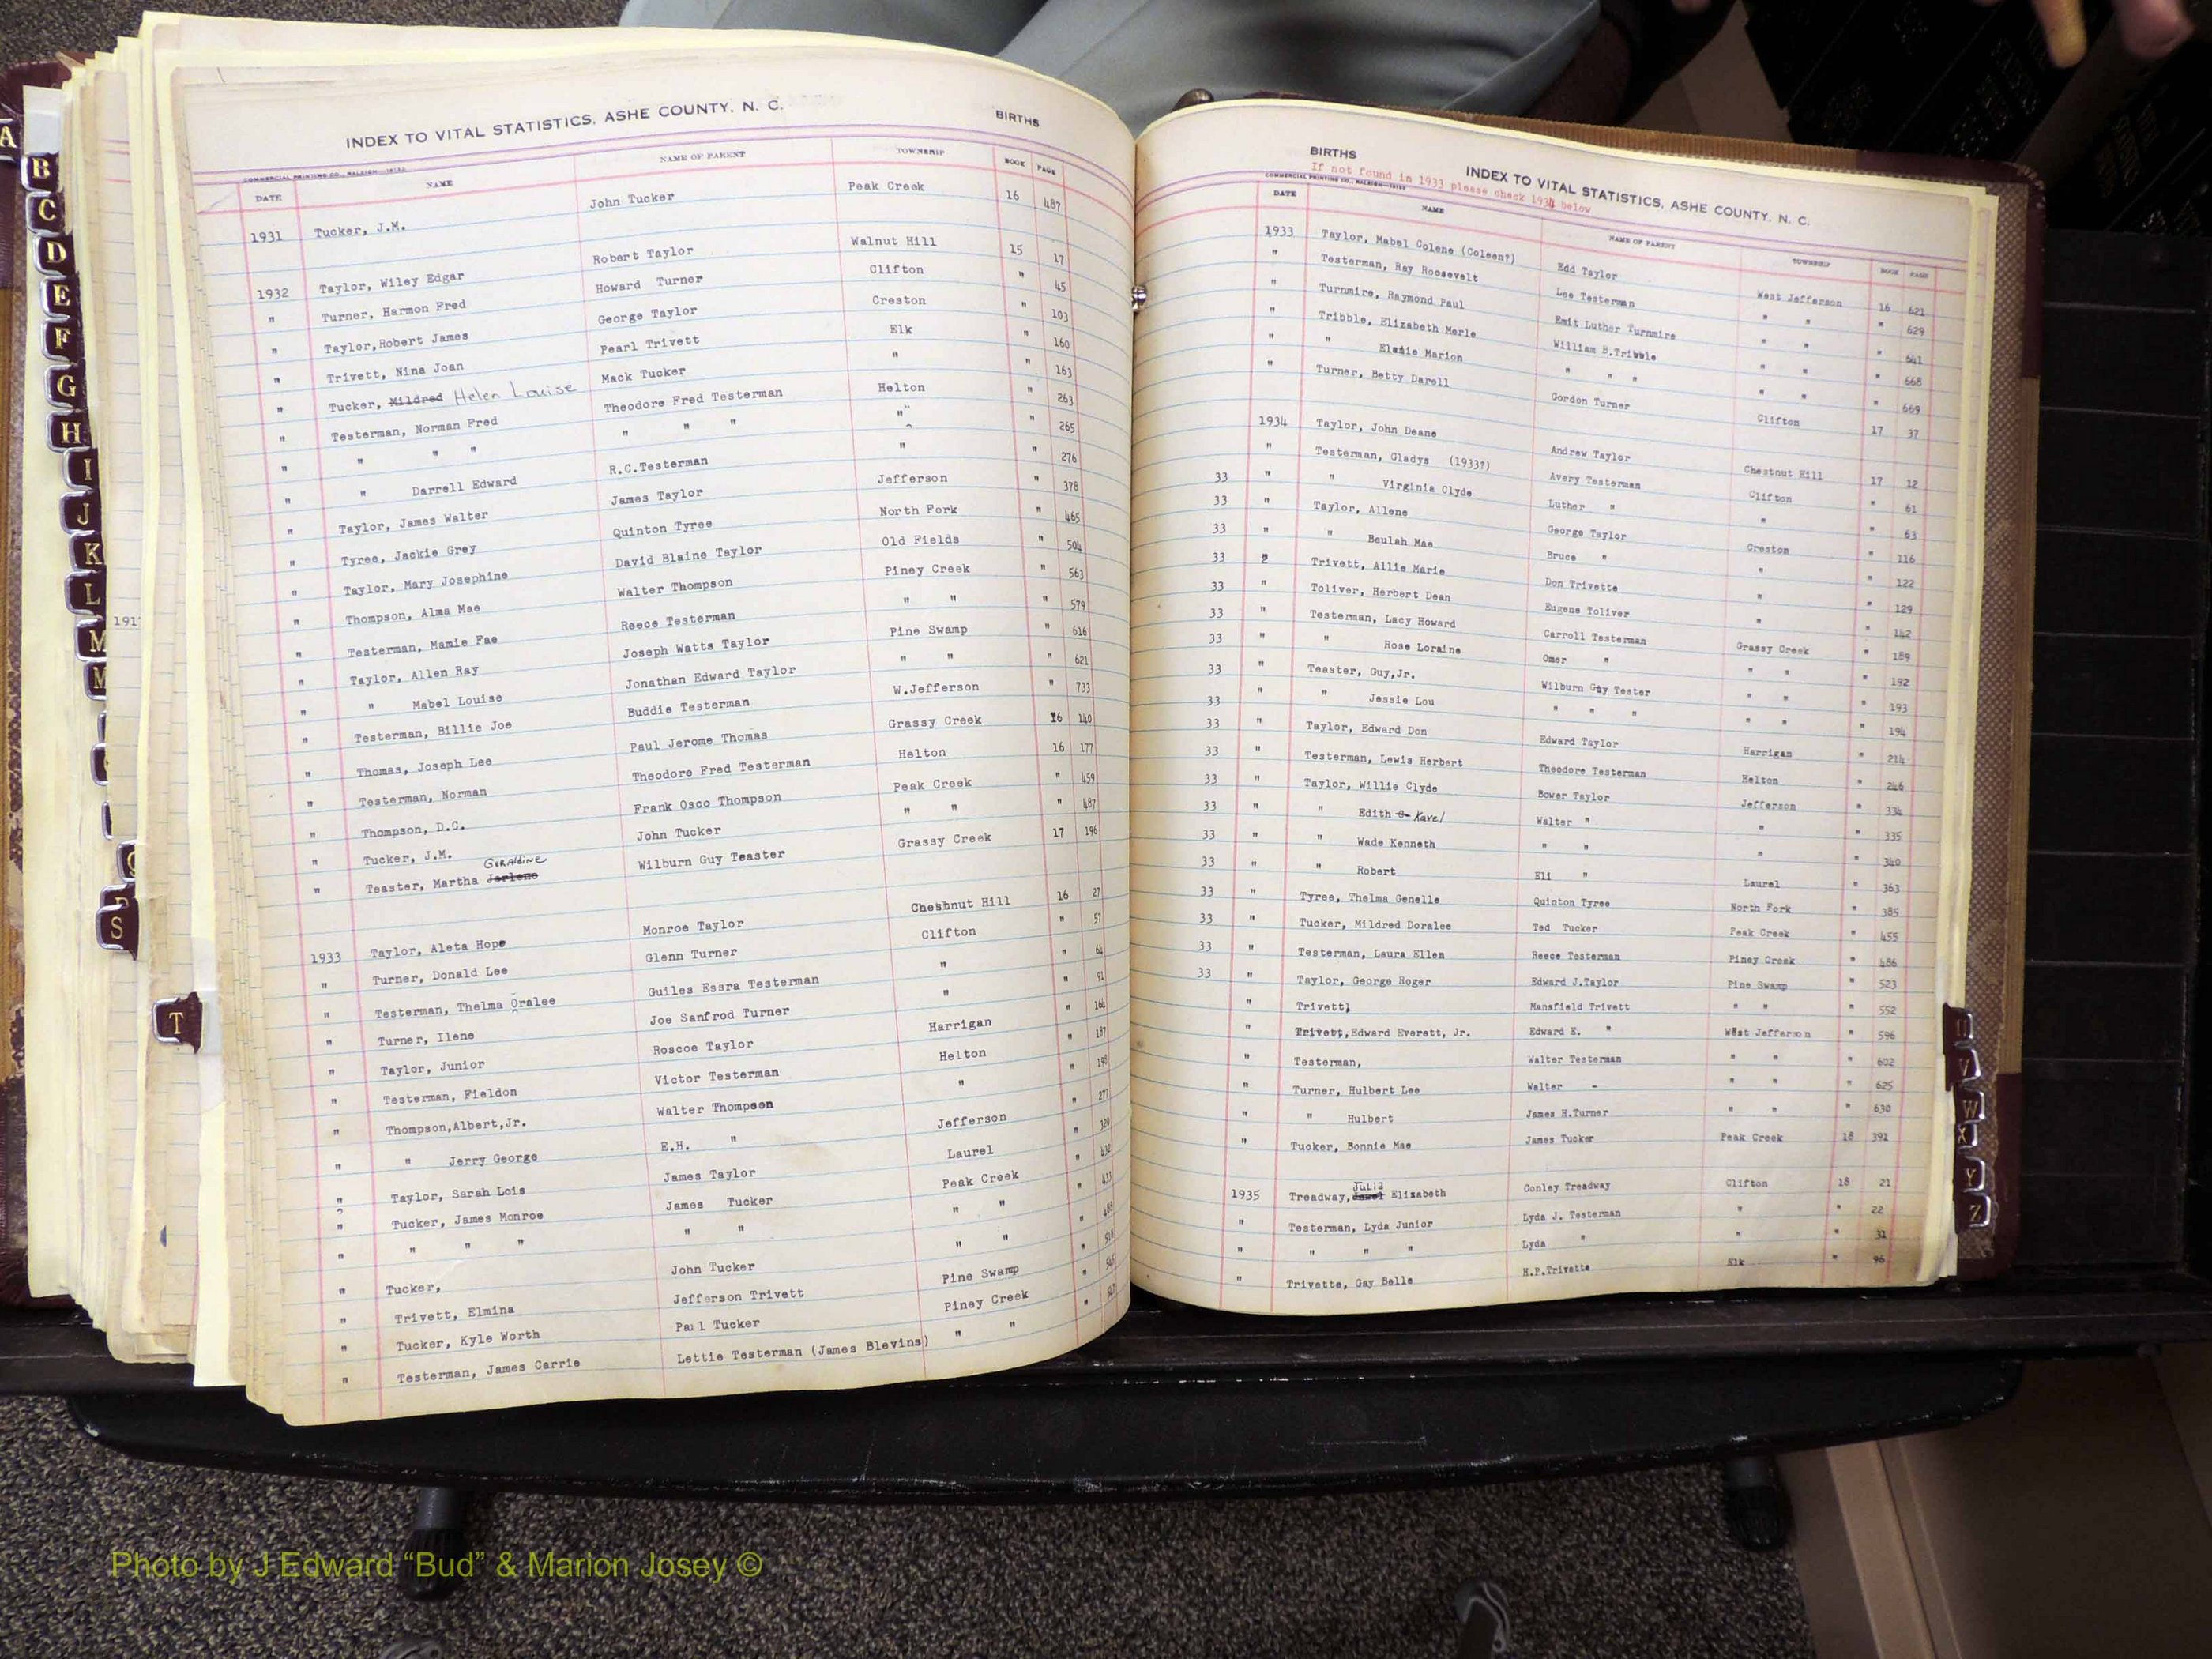 INDEX TO VITAL STATISTICS, ASHE COUNTY, N. C. BIRTHS
COMMERCIAL PRINTING CO., RALEIGH
DATE NAME NAME OF PARENT TOWNSHIP BOOK PAGE
1931 Tucker, J.M. John Tucker Peak Creek 16 487
1932 Taylor, Wiley Edgar Robert Taylor Walnut Hill 15 17
" Turner, Harmon Fred Howard Turner Clifton " 45
" Taylor,Robert James George Taylor Creston " 103
" Trivett, Nina Joan Pearl Trivett Elk " 160
" Tucker, Mildred Helen Louise Mack Tucker " " 163
" Testerman, Norman Fred Theodore Fred Testerman Helton " 263
" " " " " " " " " 265
" " Darrell Edward R.C.Testerman " " 276
" Taylor, James Walter James Taylor Jefferson " 378
" Tyree, Jackie Grey Quinton Tyree North Fork " 465
" Taylor, Mary Josephine David Blaine Taylor Old Fields " 504
" Thompson, Alma Mae Walter Thompson Piney Creek " 563
" Testerman, Mamie Fae Reece Testerman " " " 579
" Taylor, Allen Ray Joseph Watts Taylor Pine Swamp " 616
" " Mabel Louise Jonathan Edward Taylor " " " 621
" Testerman, Billie Joe Buddie Testerman W.Jefferson " 733
" Thomas, Joseph Lee Paul Jerome Thomas Grassy Creek 16 140
" Testerman, Norman Theodore Fred Testerman Helton 16 177
" Thompson, D.C. Frank Osco Thompson Peak Creek " 459
" Tucker, J.M. John Tucker " " " 487
" Teaster, Martha Jerlene Geraldine Wilburn Guy Teaster Grassy Creek 17 196
1933 Taylor, Aleta Hope Monroe Taylor Chestnut Hill 16 27
" Turner, Donald Lee Glenn Turner Clifton " 57
" Testerman, Thelma Oralee Guiles Essra Testerman " " 64
" Turner, Ilene Joe Sanfrod Turner " " 91
" Taylor, Junior Roscoe Taylor Harrigan " 166
" Testerman, Fieldon Victor Testerman Helton " 187
" Thompson,Albert,Jr. Walter Thompson " " 198
" " Jerry George E.H. " Jefferson " 277
" Taylor, Sarah Lois James Taylor Laurel "
" Tucker, James Monroe James Tucker Peak Creek "
" " " " " " " " " 433
" Tucker, John Tucker " " "
" Trivett, Elmina Jefferson Trivett Pine Swamp "
" Tucker, Kyle Worth Paul Tucker Piney Creek "
" Testerman, James Carrie Lettie Testerman (James Blevins) " " "
BIRTHS INDEX TO VITAL STATISTICS, ASHE COUNTY, N. C.
If not found in 1933 please check 1934 below
COMMERCIAL PRINTING CO., RALEIGH
DATE NAME NAME OF PARENT TOWNSHIP BOOK PAGE
1933 Taylor, Mabel Colene (Coleen?) Edd Taylor West Jefferson 16 621
" Testerman, Ray Roosevelt Lee Testerman " " " 629
" Turnmire, Raymond Paul Emit Luther Turnmire " " " 641
" Tribble, Elizabeth Merle William B.Tribble " " " 668
" " Elsie Marion " " " " " " 669
" Turner, Betty Darell Gordon Turner Clifton 17 37
1934 Taylor, John Deane Andrew Taylor Chestnut Hill 17 12
" Testerman, Gladys (1933?) Avery Testerman Clifton " 61
33 " " Virginia Clyde Luther " " " 63
33 " Taylor, Allene George Taylor Creston " 116
33 " " Beulah Mae Bruce " " " 122
33 " Trivett, Allie Marie Don Trivette " " 129
33 " Toliver, Herbert Dean Eugene Toliver " " 142
33 " Testerman, Lacy Howard Carroll Testerman Grassy Creek " 189
33 " " Rose Loraine Omer " " " " 192
33 " Teaster, Guy,Jr. Wilburn Guy Tester " " " 193
33 " " Jessie Lou " " " " " " 194
33 " Taylor, Edward Don Edward Taylor Harrigan " 214
33 " Testerman, Lewis Herbert Theodore Testerman Helton " 246
33 " Taylor, Willie Clyde Bower Taylor Jefferson " 334
33 " " Edith O. Kavel Walter " " " 335
33 " " Wade Kenneth " " " " 340
33 " " Robert Eli " Laurel " 363
33 " Tyree, Thelma Genelle Quinton Tyree North Fork " 385
33 " Tucker, Mildred Doralee Ted Tucker Peak Creek " 455
33 " Testerman, Laura Ellen Reece Testerman Piney Creek " 486
33 " Taylor, George Roger Edward J.Taylor Pine Swamp " 523
" Trivett, Mansfield Trivett " " " 552
" Trivett,Edward Everett, Jr. Edward E. " West Jefferson " 596
" Testerman, Walter Testerman " " " 602
" Turner, Hulbert Lee Walter - " " " 625
" " Hulbert James H.Turner " " " 630
" Tucker, Bonnie Mae James Tucker Peak Creek 18 391
1935 Treadway, Jewel Julia Elizabeth Conley Treadway Clifton 18 21
" Testerman, Lyda Junior Lyda J. Testerman " " 22
" " " " Lyda " " " 31
" Trivette, Gay Belle H.P.Trivette Elk " 96
A
B
C
D
E
F
G
H
I
J
K
L
M
M
S
T
V
W
X
Y
Z
191
Photo by J Edward “Bud” & Marion Josey ©